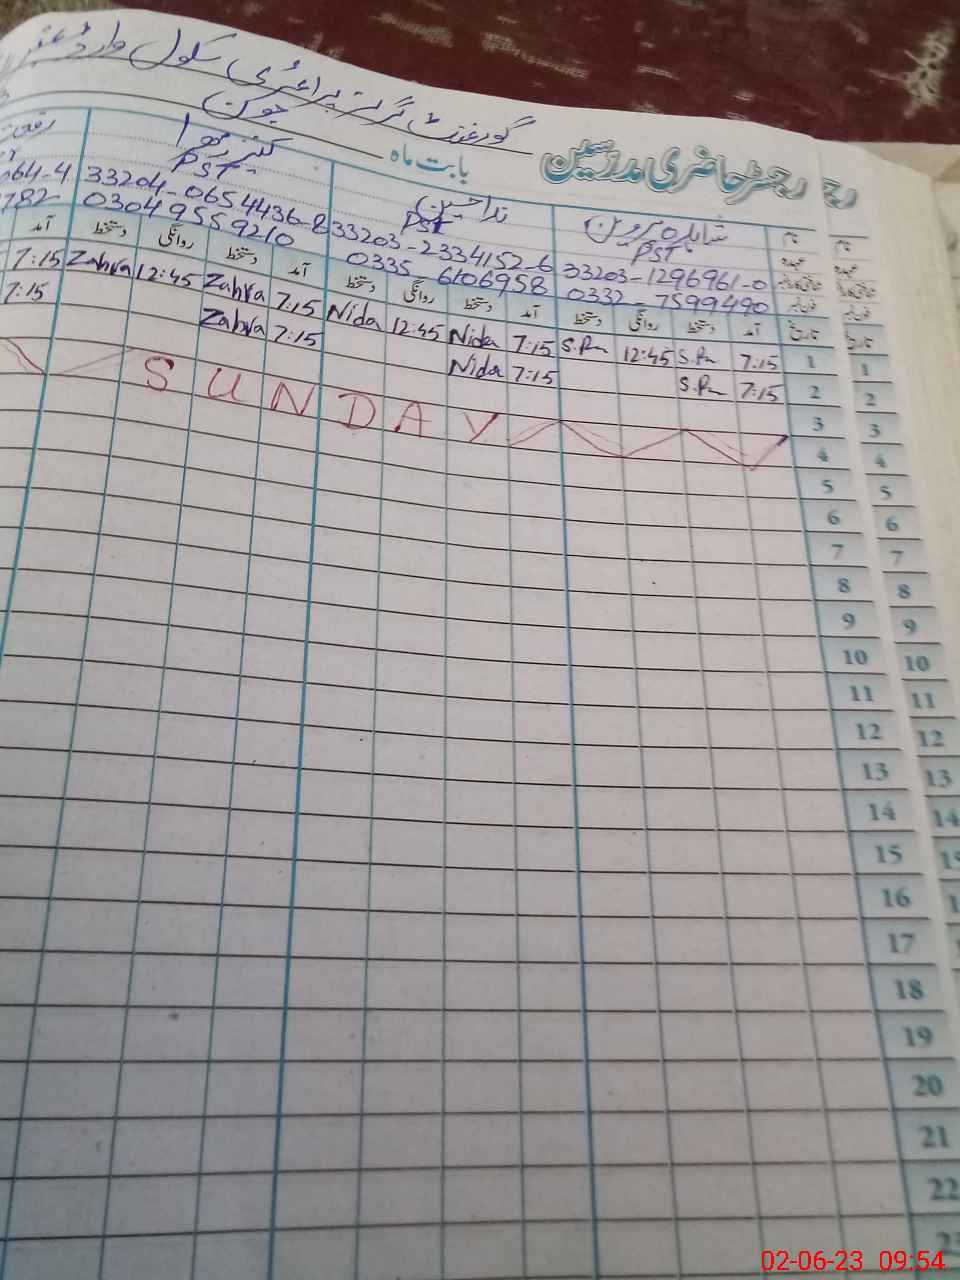 گورنمنٹ گرلز پرائمری سکول وارڈ نمبر
رجسٹر حاضری مدرسین بابت ماہ جون
نام شاہدہ پروین ندا حسین کنیز زھرا
عہدہ PST PST PST
33203-1296961-0 33203-2334152-6 33204-0654436-8 064-4
0332-7599490 0335-6106958 0304 9559210 782
تاریخ آمد دستخط روانگی دستخط آمد دستخط روانگی دستخط آمد دستخط روانگی دستخط آمد
1 7:15 S.Pn 12:45 S.Pn 7:15 Nida 12:45 Nida 7:15 Zahra 12:45 Zahra 7:15
2 7:15 S.Pn 7:15 Nida 7:15 Zahra 7:15
3
4 SUNDAY
5
6
7
8
9
10
11
12
13
14
15
16
17
18
19
20
21
22
رجـ
نام
عہدہ
1
2
3
4
5
6
7
8
9
10
11
12
13
14
02-06-23 09:54